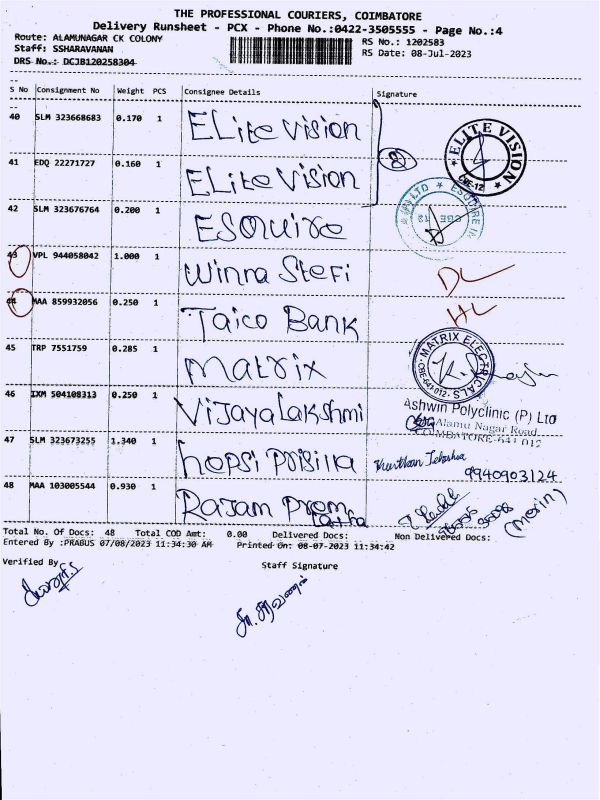 THE PROFESSIONAL COURIERS, COIMBATORE
Delivery Runsheet - PCX - Phone No.:0422-3505555 - Page No.:4
Route: ALAMUNAGAR CK COLONY
RS No.: 1202583
Staff: SSHARAVANAN
RS Date: 08-Jul-2023
DRS No.: DCJB120258304
S No Consignment No Weight PCS Consignee Details Signature
40 SLM 323668683 0.170 1 ELite vision
ELITE VISION
CBE-12
41 EDQ 22271727 0.160 1 ELite Vision
8
42 SLM 323676764 0.200 1 ESquire
43 VPL 944058042 1.000 1 Winna Stefi DL
44 MAA 859932056 0.250 1 Taico Bank HL
45 TRP 7551759 0.285 1 Matrix
MATRIX ELECTRICALS
CBE-641 012
46 IXM 504108313 0.250 1 Vijaya Lakshmi
Ashwin Polyclinic (P) Ltd
Alamu Nagar Road
COIMBATORE-641 012
47 SLM 323673255 1.340 1 hepsi
9940903124
48 MAA 103005544 0.930 1 Rajam Prem
Latha
(Merin)
Total No. Of Docs: 48 Total COD Amt: 0.00 Delivered Docs: Non Delivered Docs:
Entered By :PRABUS 07/08/2023 11:34:30 AM Printed On: 08-07-2023 11:34:42
Verified By
Staff Signature